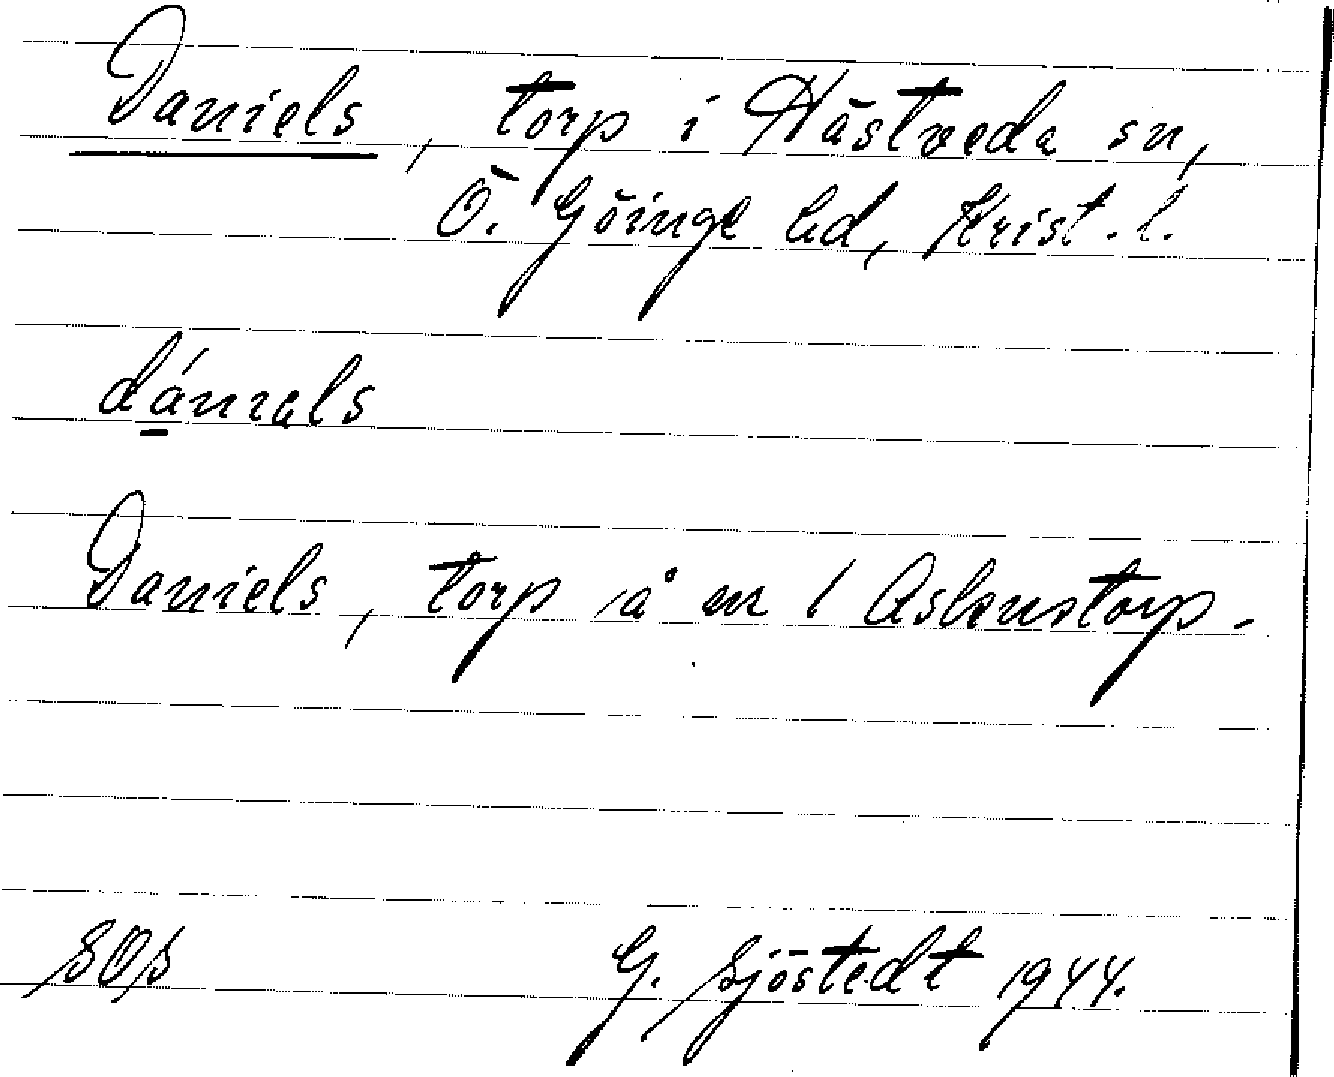 Daniels, torp i Hästveda sn,
Ö. Göinge hd, Krist. l.
dánıəls
Daniels, torp å nr 1 Askenstorp.
SOS G. Sjöstedt 1944.